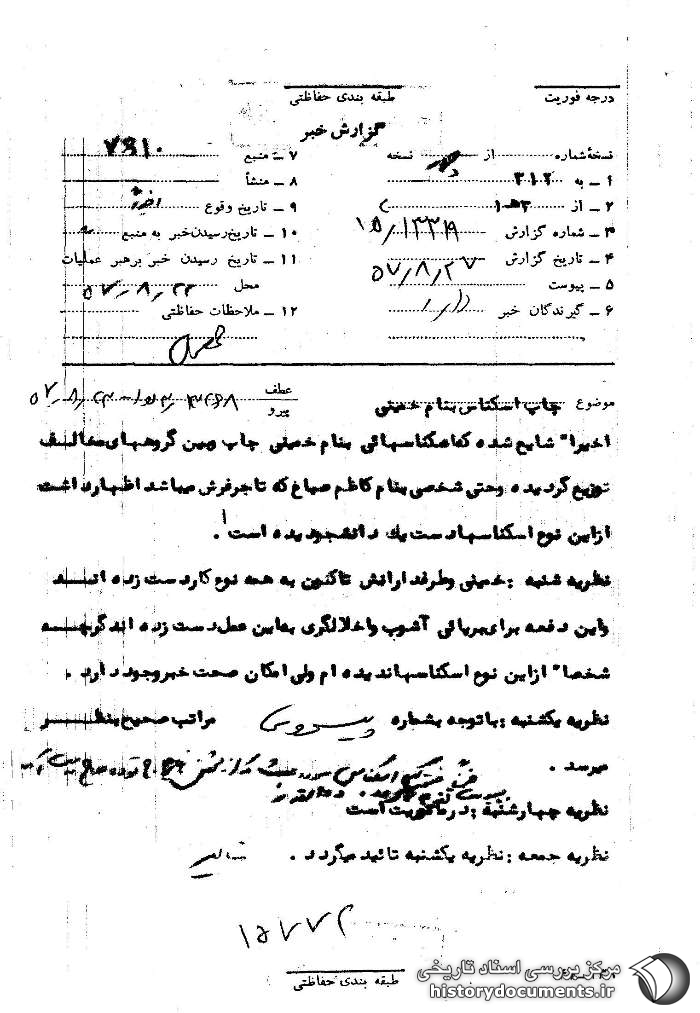 درجه فوریت
طبقه بندی حفاظتی
گزارش خبر
نسخهٔ شماره از نسخه
۱ ـ به ۳۱۲
۲ ـ از
۳ ـ شماره گزارش
۴ ـ تاریخ گزارش ۵۷٫۸٫۲۷
۵ ـ پیوست
۶ ـ گیرندگان خبر
۷ ـ منبع ۷۹۱۰
۸ ـ منشأ
۹ ـ تاریخ وقوع اخیراً
۱۰ ـ تاریخ رسیدن خبر به منبع
۱۱ ـ تاریخ رسیدن خبر برهبر عملیات
محل ۵۷٫۸٫۲۲
۱۲ ـ ملاحظات حفاظتی
موضوع چاپ اسکناس بنام خمینی
عطف
پیرو
اخیرا" شایع شده که اسکناسهائی بنام خمینی چاپ وبین گروههای مخالف
توزیع گردیده وحتی شخصی بنام کاظم صباغ که تاجرفرش میباشد اظهارداشت
ازاین نوع اسکناسهادست یک دانشجودیده است .
نظریه شنبه : خمینی وطرفدارانش تاکنون به همه نوع کاردست زده اند
واین دفعه برای برپائی آشوب واخلالگری به این عمل دست زده اند گرچه
شخصا" ازاین نوع اسکناسهاندیده ام ولی امکان صحت خبروجود دارد .
نظریه یکشنبه : باتوجه بشماره پیروی مراتب صحیح بنظر
میرسد .
نظریه چهارشنبه : درماموریت است
نظریه جمعه : نظریه یکشنبه تائید میگردد .
۱۵۷۷۲
طبقه بندی حفاظتی
مرکز بررسی اسناد تاریخی
historydocuments.ir